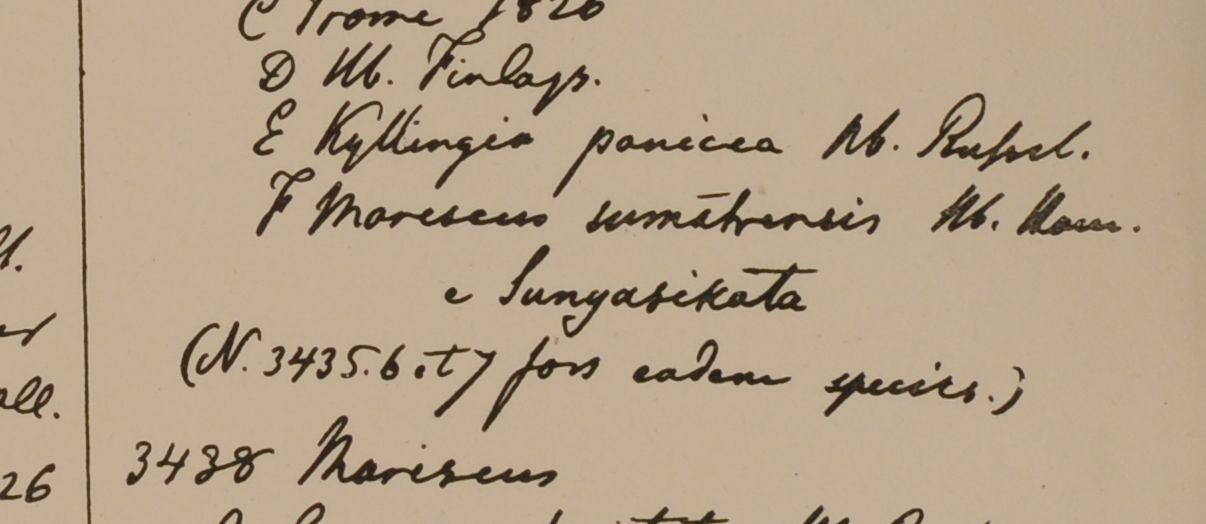 C Prome 1826
D Hb. Finlays.
E Kyllingia panicea Hb. Russel.
F Mariscus sumatrensis Hb. Ham.
e Sungasikata
(N. 3435. 6. et 7 fors eadem species.)
3438 Mariscus
ll.
26